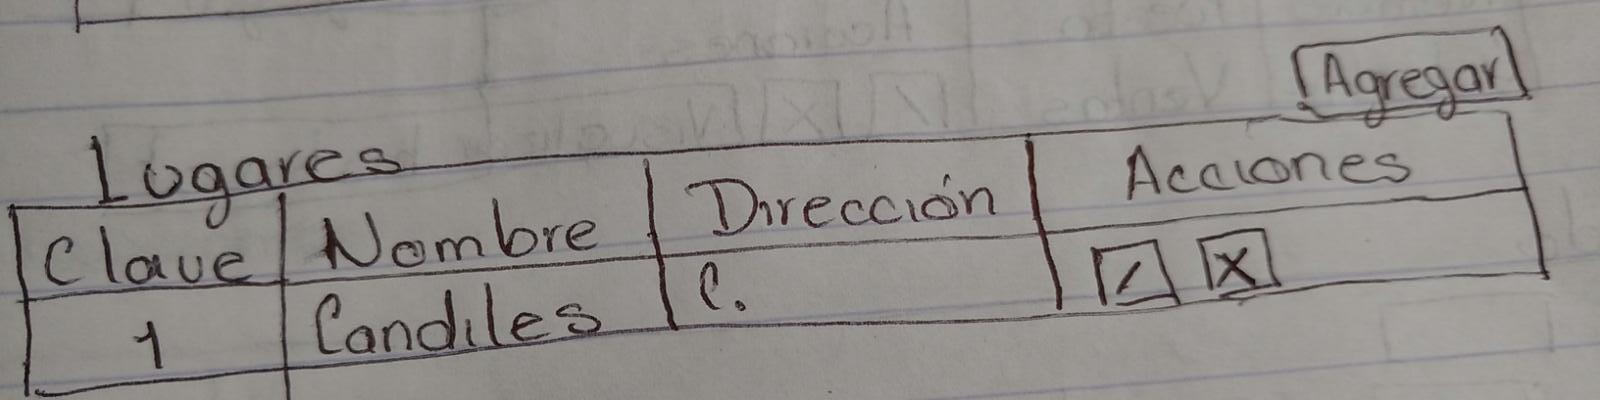 Agregar
Lugares
Clave Nombre Dirección Acciones
1 Candiles C. X